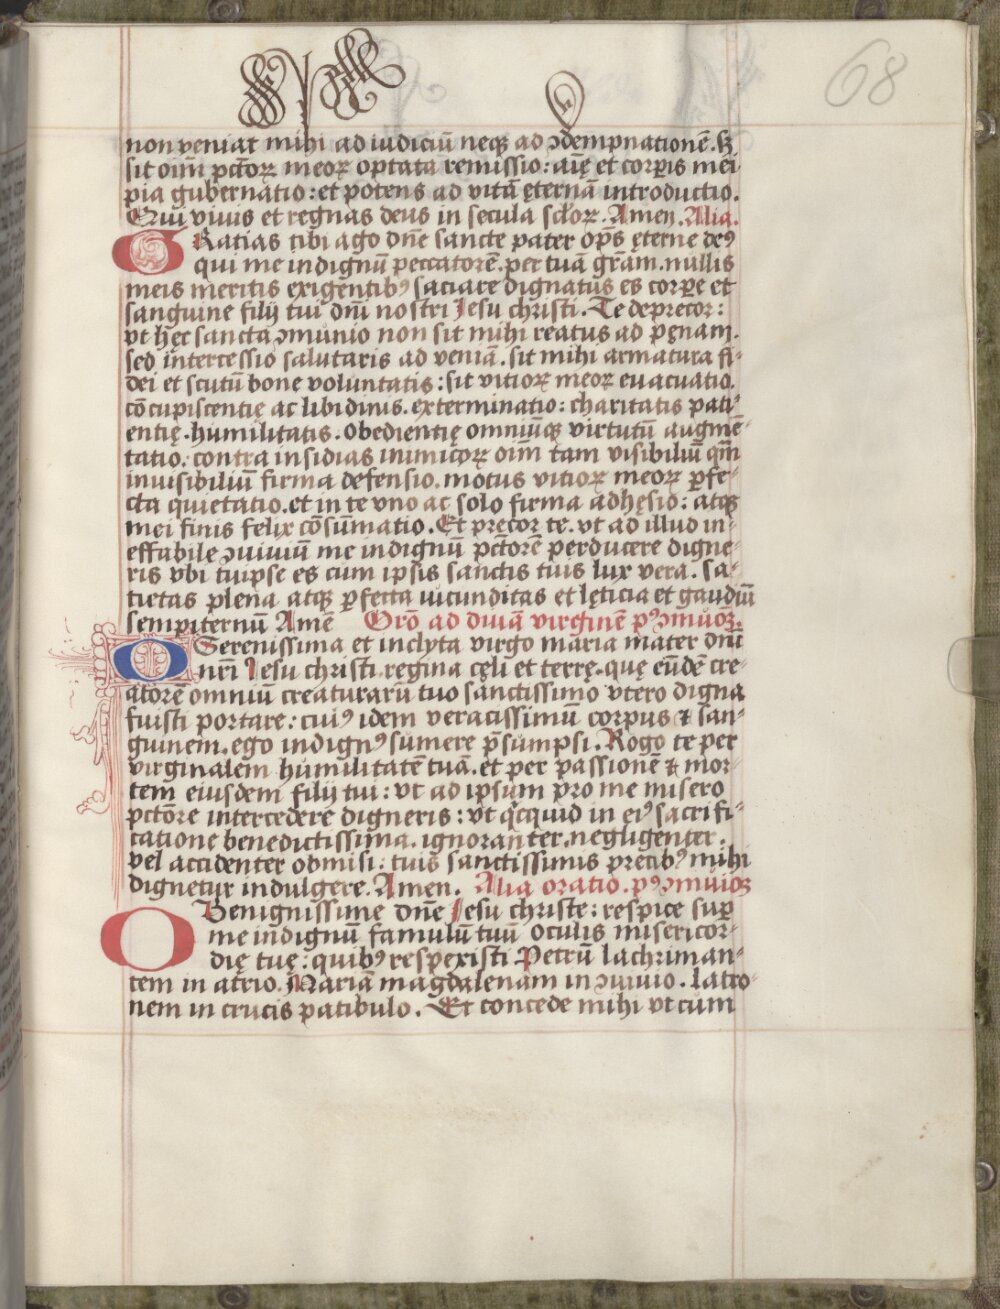 68
non veniat mihi ad iudiciū neqꝫ ad ꝯdempnationē. sꝫ
sit oīm pctōrꝝ meoꝝ optata remissio: aīę et corpris mei
pia gubernatio: et potens ad vitā ęternā introductio.
Qui viuis et regnas deus in secula sclōꝝ. Amen. Alia.
GRatias tibi ago dn̄e sancte pater op̄s ęterne deꝰ
qui me indignū peccatorē. per tuā grām. nullis
meis meritis exigentibꝰ saciare dignatus es corpe et
sanguine filij tui dn̄i nostri Jesu christi. Te deprecor:
vt hec sancta ꝯmunio non sit mihi reatus ad pęnam.
sed intercessio salutaris ad veniā. sit mihi armatura fi-
dei et scutū bone voluntatis: sit vitioꝝ meoꝝ euacuatio.
cōcupiscentię ac libidinis. exterminatio: charitatis pati-
entię. humilitatis. obedientię omniūqꝫ virtutū augmē-
tatio. contra insidias inimicoꝝ oīm tam visibiliū qm̄
inuisibiliū firma defensio. motus vitioꝝ meoꝝ ꝑfe-
cta quietatio. et in te vno ac solo firma adhęsio: atqꝫ
mei finis felix cōsummatio. Et precor te. vt ad illud in-
effabile ꝯuiuiū me indignū pctōrē perducere digne-
ris vbi tu ipse es cum ipsis sanctis tuis lux vera. sa-
tietas plena atqꝫ ꝑfecta iucunditas et lęticia et gaudiū
sempiternū Amē Orō ad diuā virginē pꝰ ꝯmūoꝫ.
O Serenissima et inclyta virgo maria mater dn̄i
nr̄i Jesu christi. regina cęli et terrę. quę eūdē cre-
atorē omniū creaturarū tuo sanctissimo vtero digna
fuisti portare: cuiꝰ idem veracissimū corpus & san-
guinem. ego indignꝰ sumere p̄sumpsi. Rogo te per
virginalem humilitatē tuā. et per passionē & mor-
tem eiusdem filij tui: vt ad ipsum pro me misero
pctōre intercedere digneris: vt qͥcquid in eiꝰ sacrifi-
catione benedictissima. ignoranter. negligenter.
vel accidenter obmisi: tuis sanctissimis precibꝰ mihi
dignetur indulgere. Amen. Alia oratio. pꝰ ꝯmuioꝫ
O Benignissime dn̄e Jesu christe: respice suꝑ
me indignū famulū tuū oculis misericor-
dię tuę: quibꝰ respexisti Petrū lachriman-
tem in atrio. Mariā magdalenam in ꝯuiuio. latro-
nem in crucis patibulo. Et concede mihi vt cum